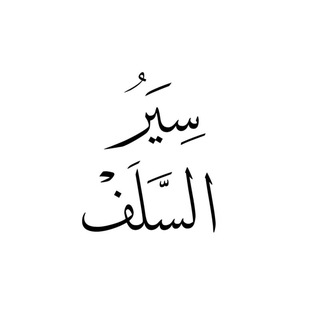 سِيَرُ
السَّلَفْ